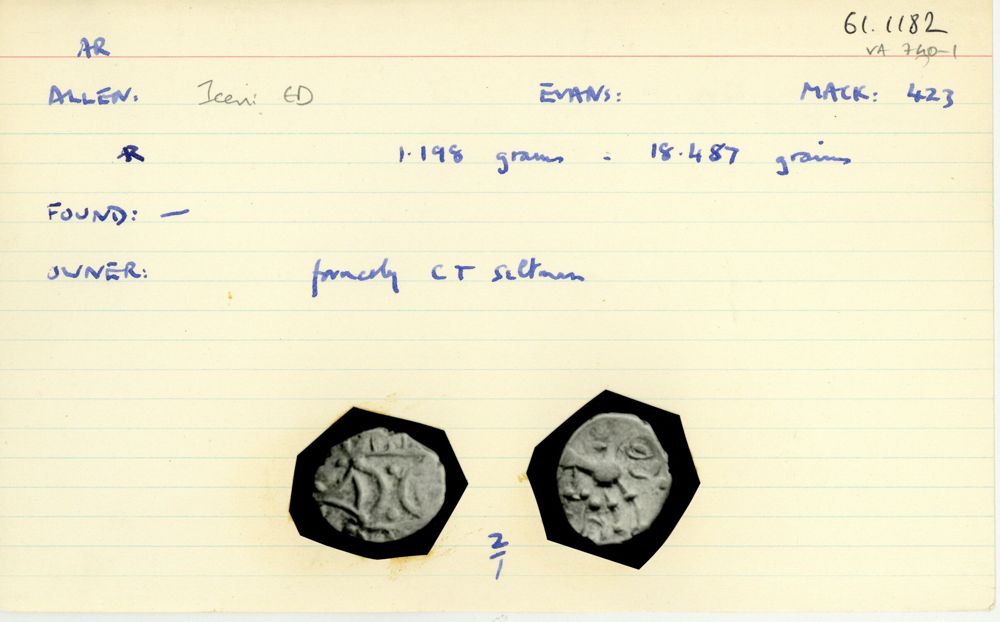 61.1182
AR
VA 740-1
ALLEN: Iceni ED EVANS: MACK: 423
R 1.198 grams = 18.487 grains
FOUND: —
OWNER: formerly C T Seltman
2/1